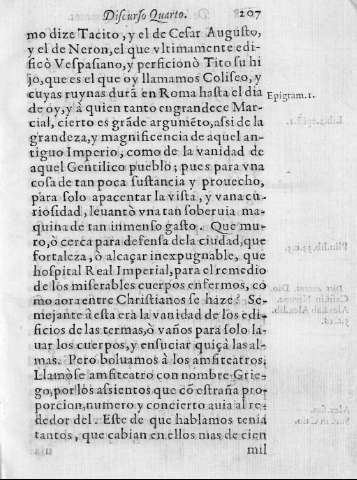 Discurso Quarto. 207
mo dize Tacito, y el de Cesar Augusto,
y el de Neron, el que vltimamente edi-
ficò Vespasiano, y perficionò Tito su hi
jo, que es el que oy llamamos Coliseo, y
cuyas ruynas durã en Roma hasta el dia
de oy, y à quien tanto engrandece Mar-
Epigram. 1.
cial, cierto es grãde argumẽto, assi de la
grandeza, y magnificencia de aquel an-
tiguo Imperio, como de la vanidad de
aquel Gentilico pueblo; pues para vna
cosa de tan poca sustancia y prouecho,
para solo apacentar la vista, y vana cu-
riosidad, leuantò vna tan soberuia ma-
quina de tan inmenso gasto. Que mu-
ro, ò cerca para defensa dela ciudad, que
fortaleza, ò alcaçar inexpugnable, que
hospital Real Imperial, para el remedio
de los miserables cuerpos enfermos, co
mo aora entre Christianos se haze? Se-
mejante à esta era la vanidad de los edi-
ficios de las termas, ò vaños para solo la-
uar los cuerpos, y ensuciar quiçà las al-
mas. Pero boluamos à los amfiteatros;
Llamòse amfiteatro con nombre Grie-
go, por los assientos que cõ estraña pro-
porcion, numero y concierto auia al re-
dedor del. Este de que hablamos tenia
tantos, que cabian en ellos mas de cien
mil